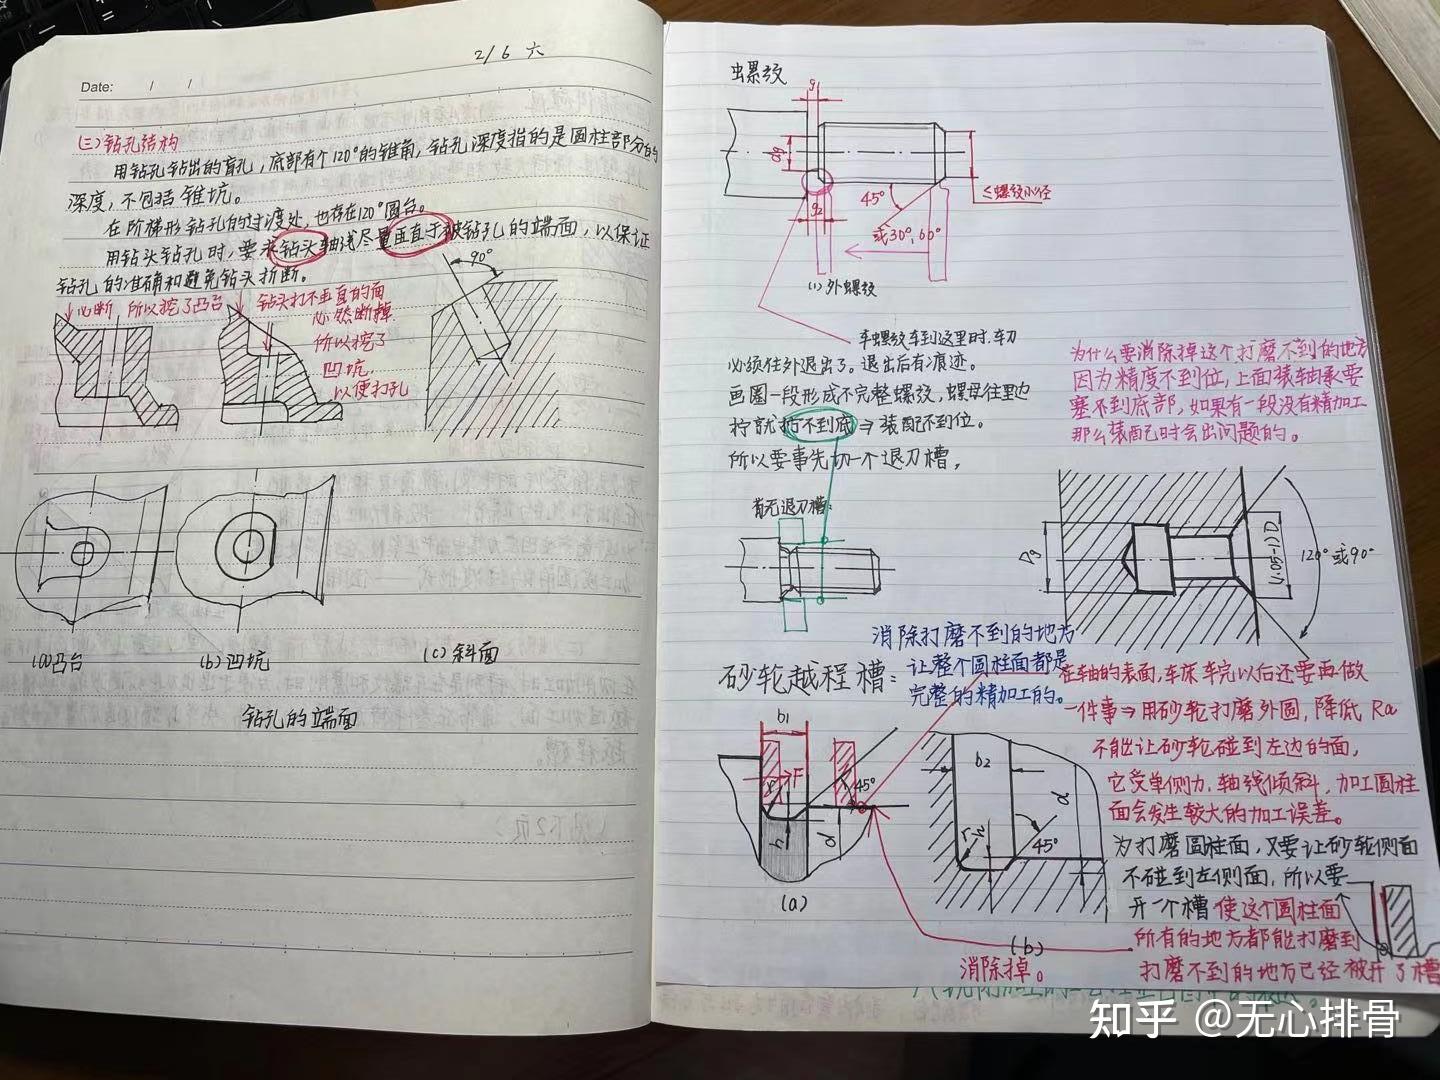 2/6 六
Date: / /
(三)钻孔结构
用钻孔钻出的盲孔，底部有个120°的锥角，钻孔深度指的是圆柱部分的
深度，不包括锥坑。
在阶梯形钻孔的过渡处，也存在120°圆台。
用钻头钻孔时，要求钻头轴线尽量垂直于被钻孔的端面，以保证
钻孔的准确和避免钻头折断。
90°
必断 所以挖了凸台
钻头打不垂直的面
必然断掉
所以挖了
凹坑，
以便打孔
(a)凸台
(b)凹坑
(c)斜面
钻孔的端面
螺纹
g1
dg
g2
45°
或30°，60°
≤螺纹小径
(1)外螺纹
车螺纹车到这里时，车刀
必须往外退出了。退出后有痕迹。
画圈一段形成不完整螺纹，螺母往里边
拧就拧不到底⇒装配不到位。
所以要事先切一个退刀槽，
若无退刀槽：
为什么要消除掉这个打磨不到的地方
因为精度不到位，上面装轴承要
塞不到底部，如果有一段没有精加工
那么装配时会出问题的。
Dg
(1.05-1)D
120°或90°
砂轮越程槽：
消除打磨不到的地方
让整个圆柱面都是
完整的精加工的。
在轴的表面，车床车完以后还要再做
一件事⇒用砂轮打磨外圆，降低Ra
不能让砂轮碰到左边的面，
它受单侧力，轴线倾斜，加工圆柱
面会发生较大的加工误差。
为打磨圆柱面，又要让砂轮侧面
不碰到左侧面，所以要
开一个槽 使这个圆柱面
所有的地方都能打磨到
打磨不到的地方已经被开了槽
消除掉。
b1
F
45°
h
d
(a)
b2
r
h
45°
d
(b)
知乎 @无心排骨